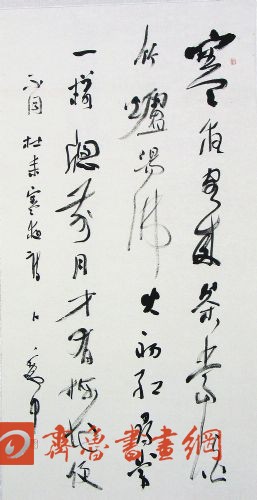 寒夜客來茶當酒
竹爐湯沸火初紅尋常
一樣牕前月才有梅花便
不同 杜耒寒夜詩
齊魯書畫網